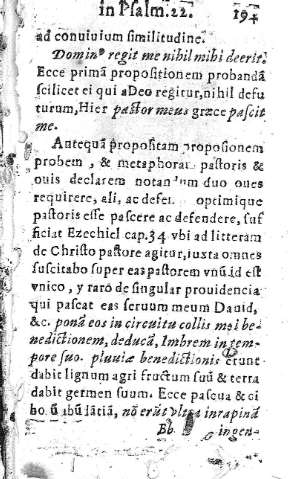 in Psalm.22. 194
ad conuiuium similitudine.
Dominꝰ regit me nihil mihi deerit.
Ecce primā propositionem probandā
scilicet ei qui aDeo regitur, nihil defu
turum, Hier pastor meus græce pascit
me.
Antequā propositam propositionem
probem, & metaphoram pastoris &
ouis declarem notandum duo oues
requirere, ali, ac defen optimique
pastoris esse pascere ac defendere, suf
ficiat Ezechiel cap.34 vbi ad litteram
de Christo pastore agitur, iuxta omnes
suscitabo super eas pastorem vnū.id est
vnico, y raro de singular prouidencia
qui pascat eas seruum meum Dauid,
&c. ponā eos in circuitu collis mei be-
nedictionem, deducā, Imbrem in tem-
pore suo. pluuiæ benedictionis erunt
dabit lignum agri fructum suū & terra
dabit germen suum. Ecce pascua & ci
nō erūt vltra in rapinā
Bb. ingen-